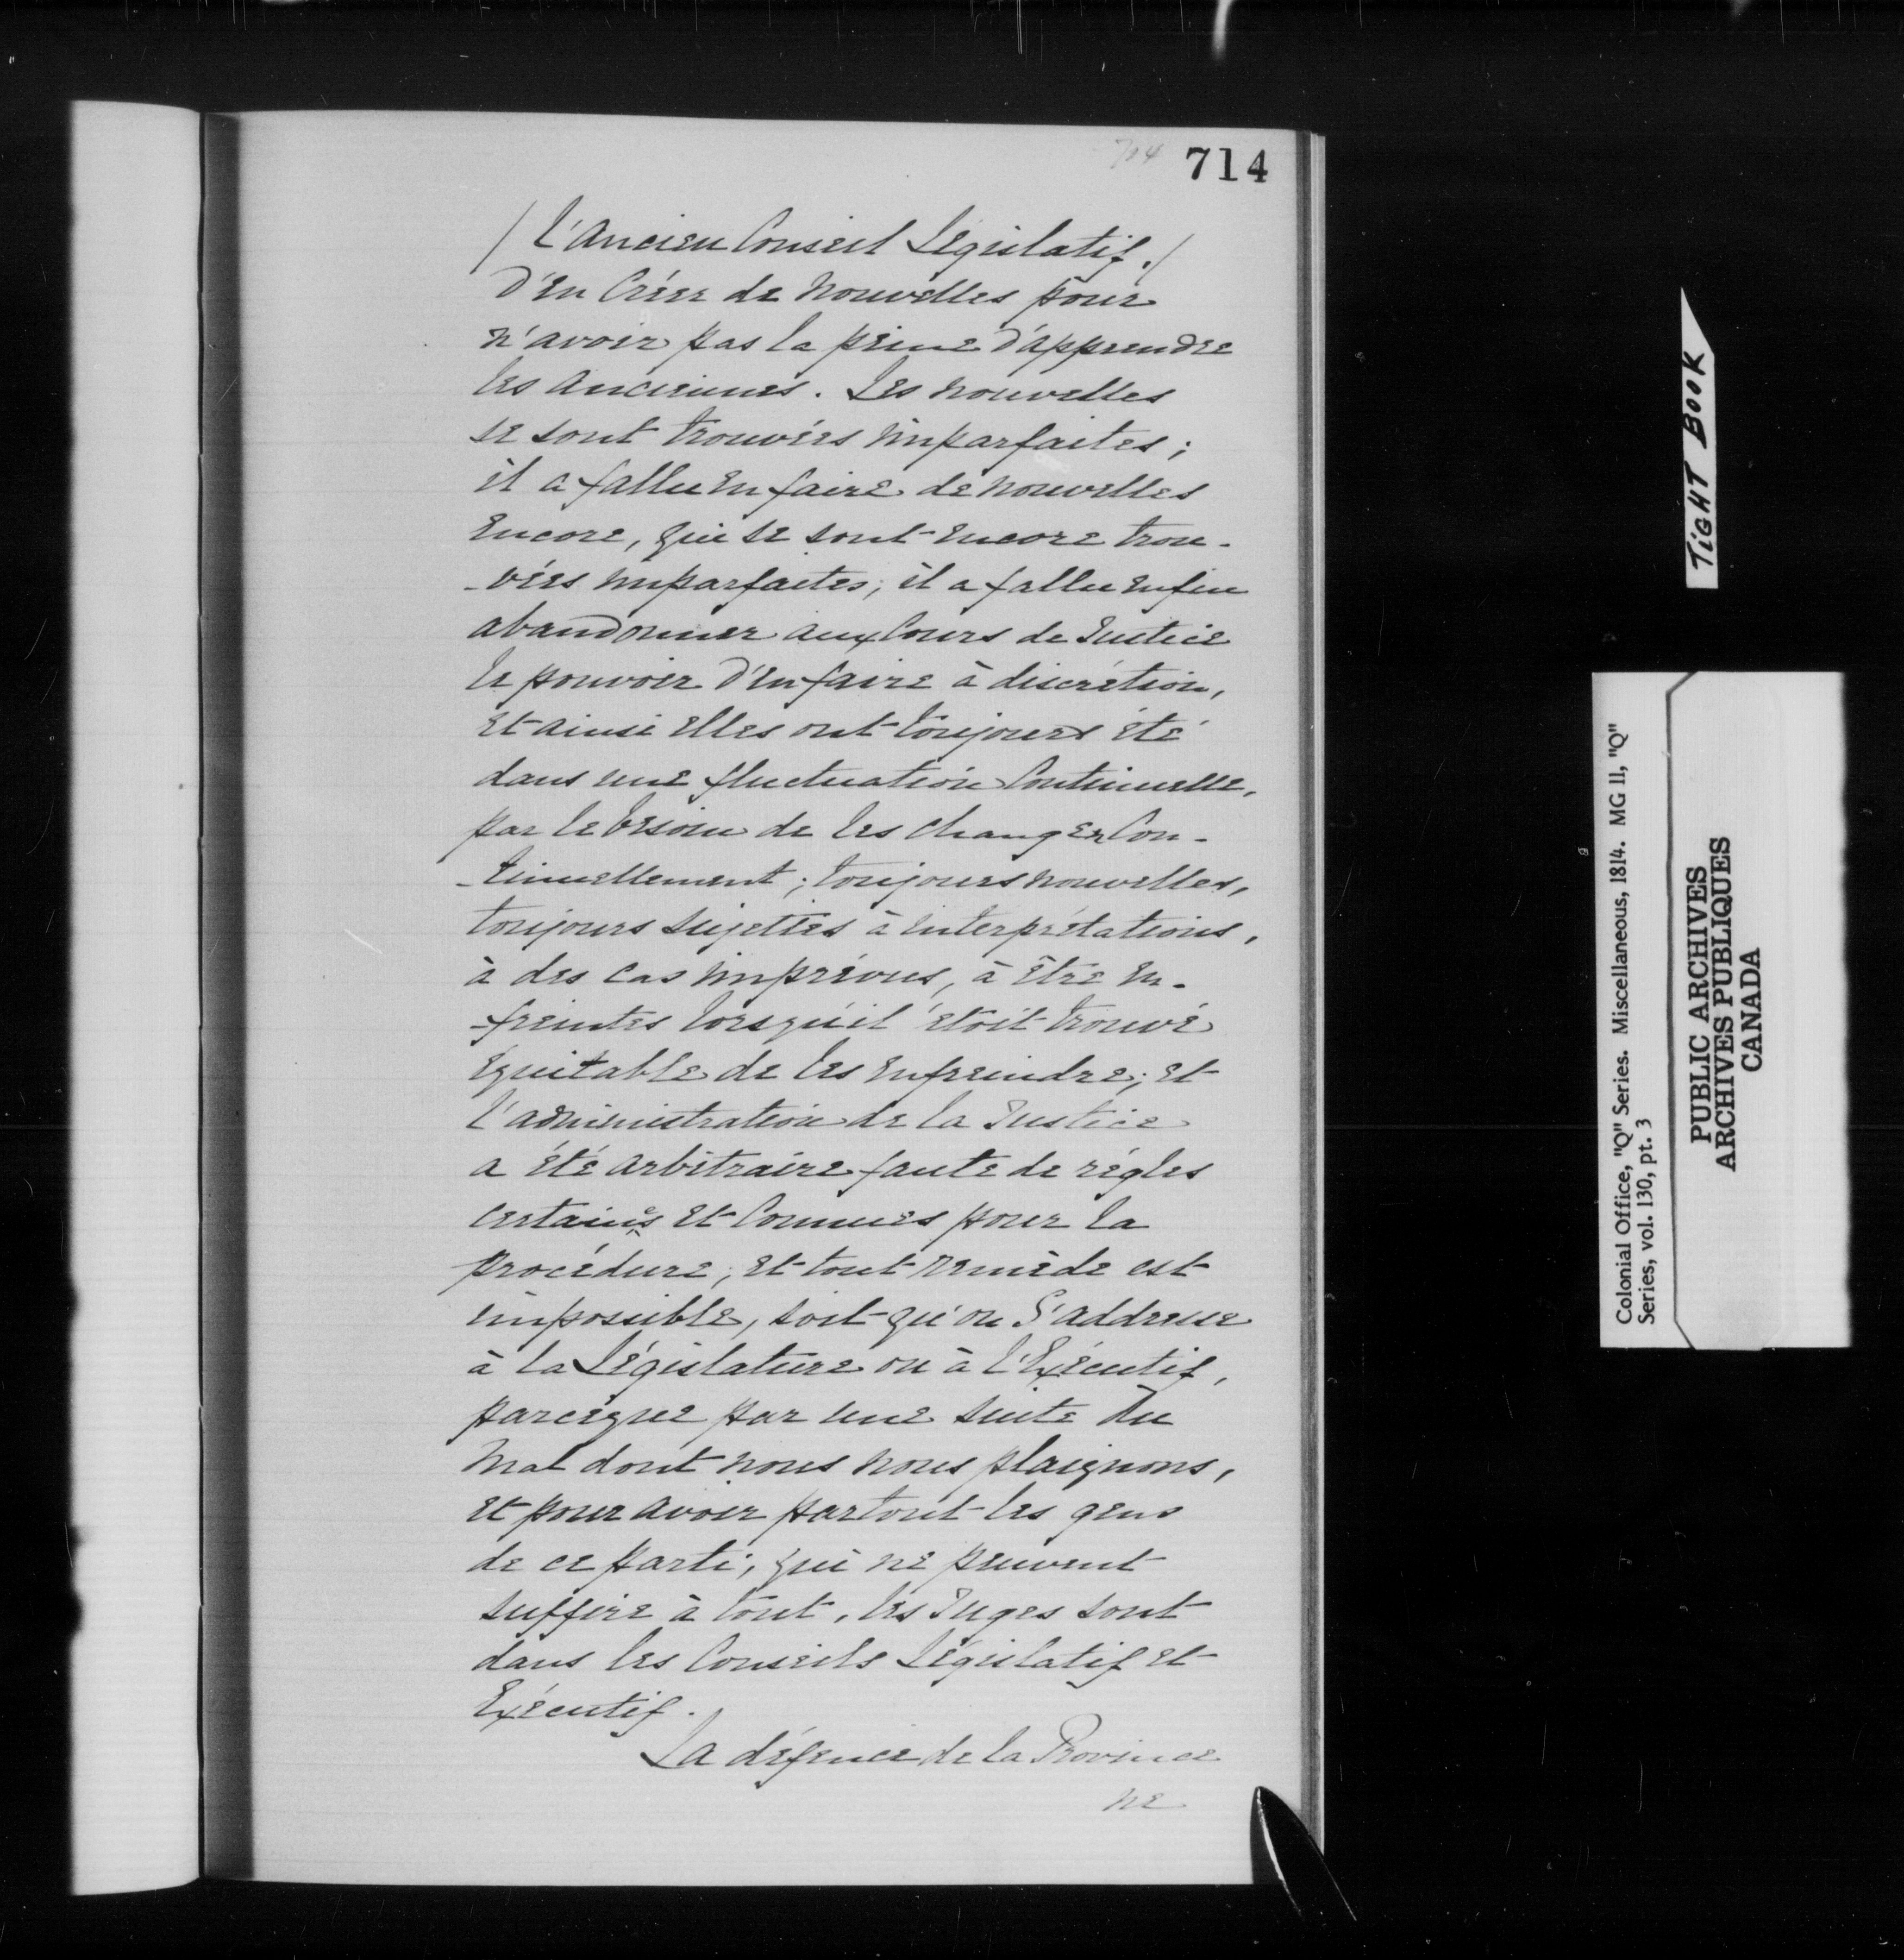 704 714
/ L'ancien Conseil Législatif. /
d'en Créer de nouvelles pour
n'avoir pas la peine d'apprendre
les anciennes. Les nouvelles
se sont trouvées imparfaites;
il a fallu en faire de nouvelles
encore, qui se sont encore trou-
-vées imparfaites; il a fallu enfin
abandonner aux Cours de Justice
le pouvoir d'en faire à discrétion,
et ainsi elles ont toujours été
dans une fluctuation Continuelle,
par le besoin de les changer Con-
-tinuellement; toujours nouvelles,
toujours sujettes à interprétations,
à des cas imprévus, à être en-
-freintes lorsqu'il étoit trouvé
équitable de les enfreindre; et
l'administration de la Justice
a été arbitraire faute de régles
certaines et Connues pour la
procédure; et tout remède est
impossible, soit qu'on S'addresse
à la Législature ou à l'Exécutif,
parceque par une suite du
mal dont nous nous plaignons,
et pour avoir partout les gens
de ce parti, qui ne peuvent
suffire à tout, les Juges sont
dans les Conseils Législatif et
Exécutif.
La défence de la Province
ne
TIGHT BOOK
Colonial Office, "Q" Series. Miscellaneous, 1814. MG 11, "Q"
Series, vol. 130, pt. 3
PUBLIC ARCHIVES
ARCHIVES PUBLIQUES
CANADA